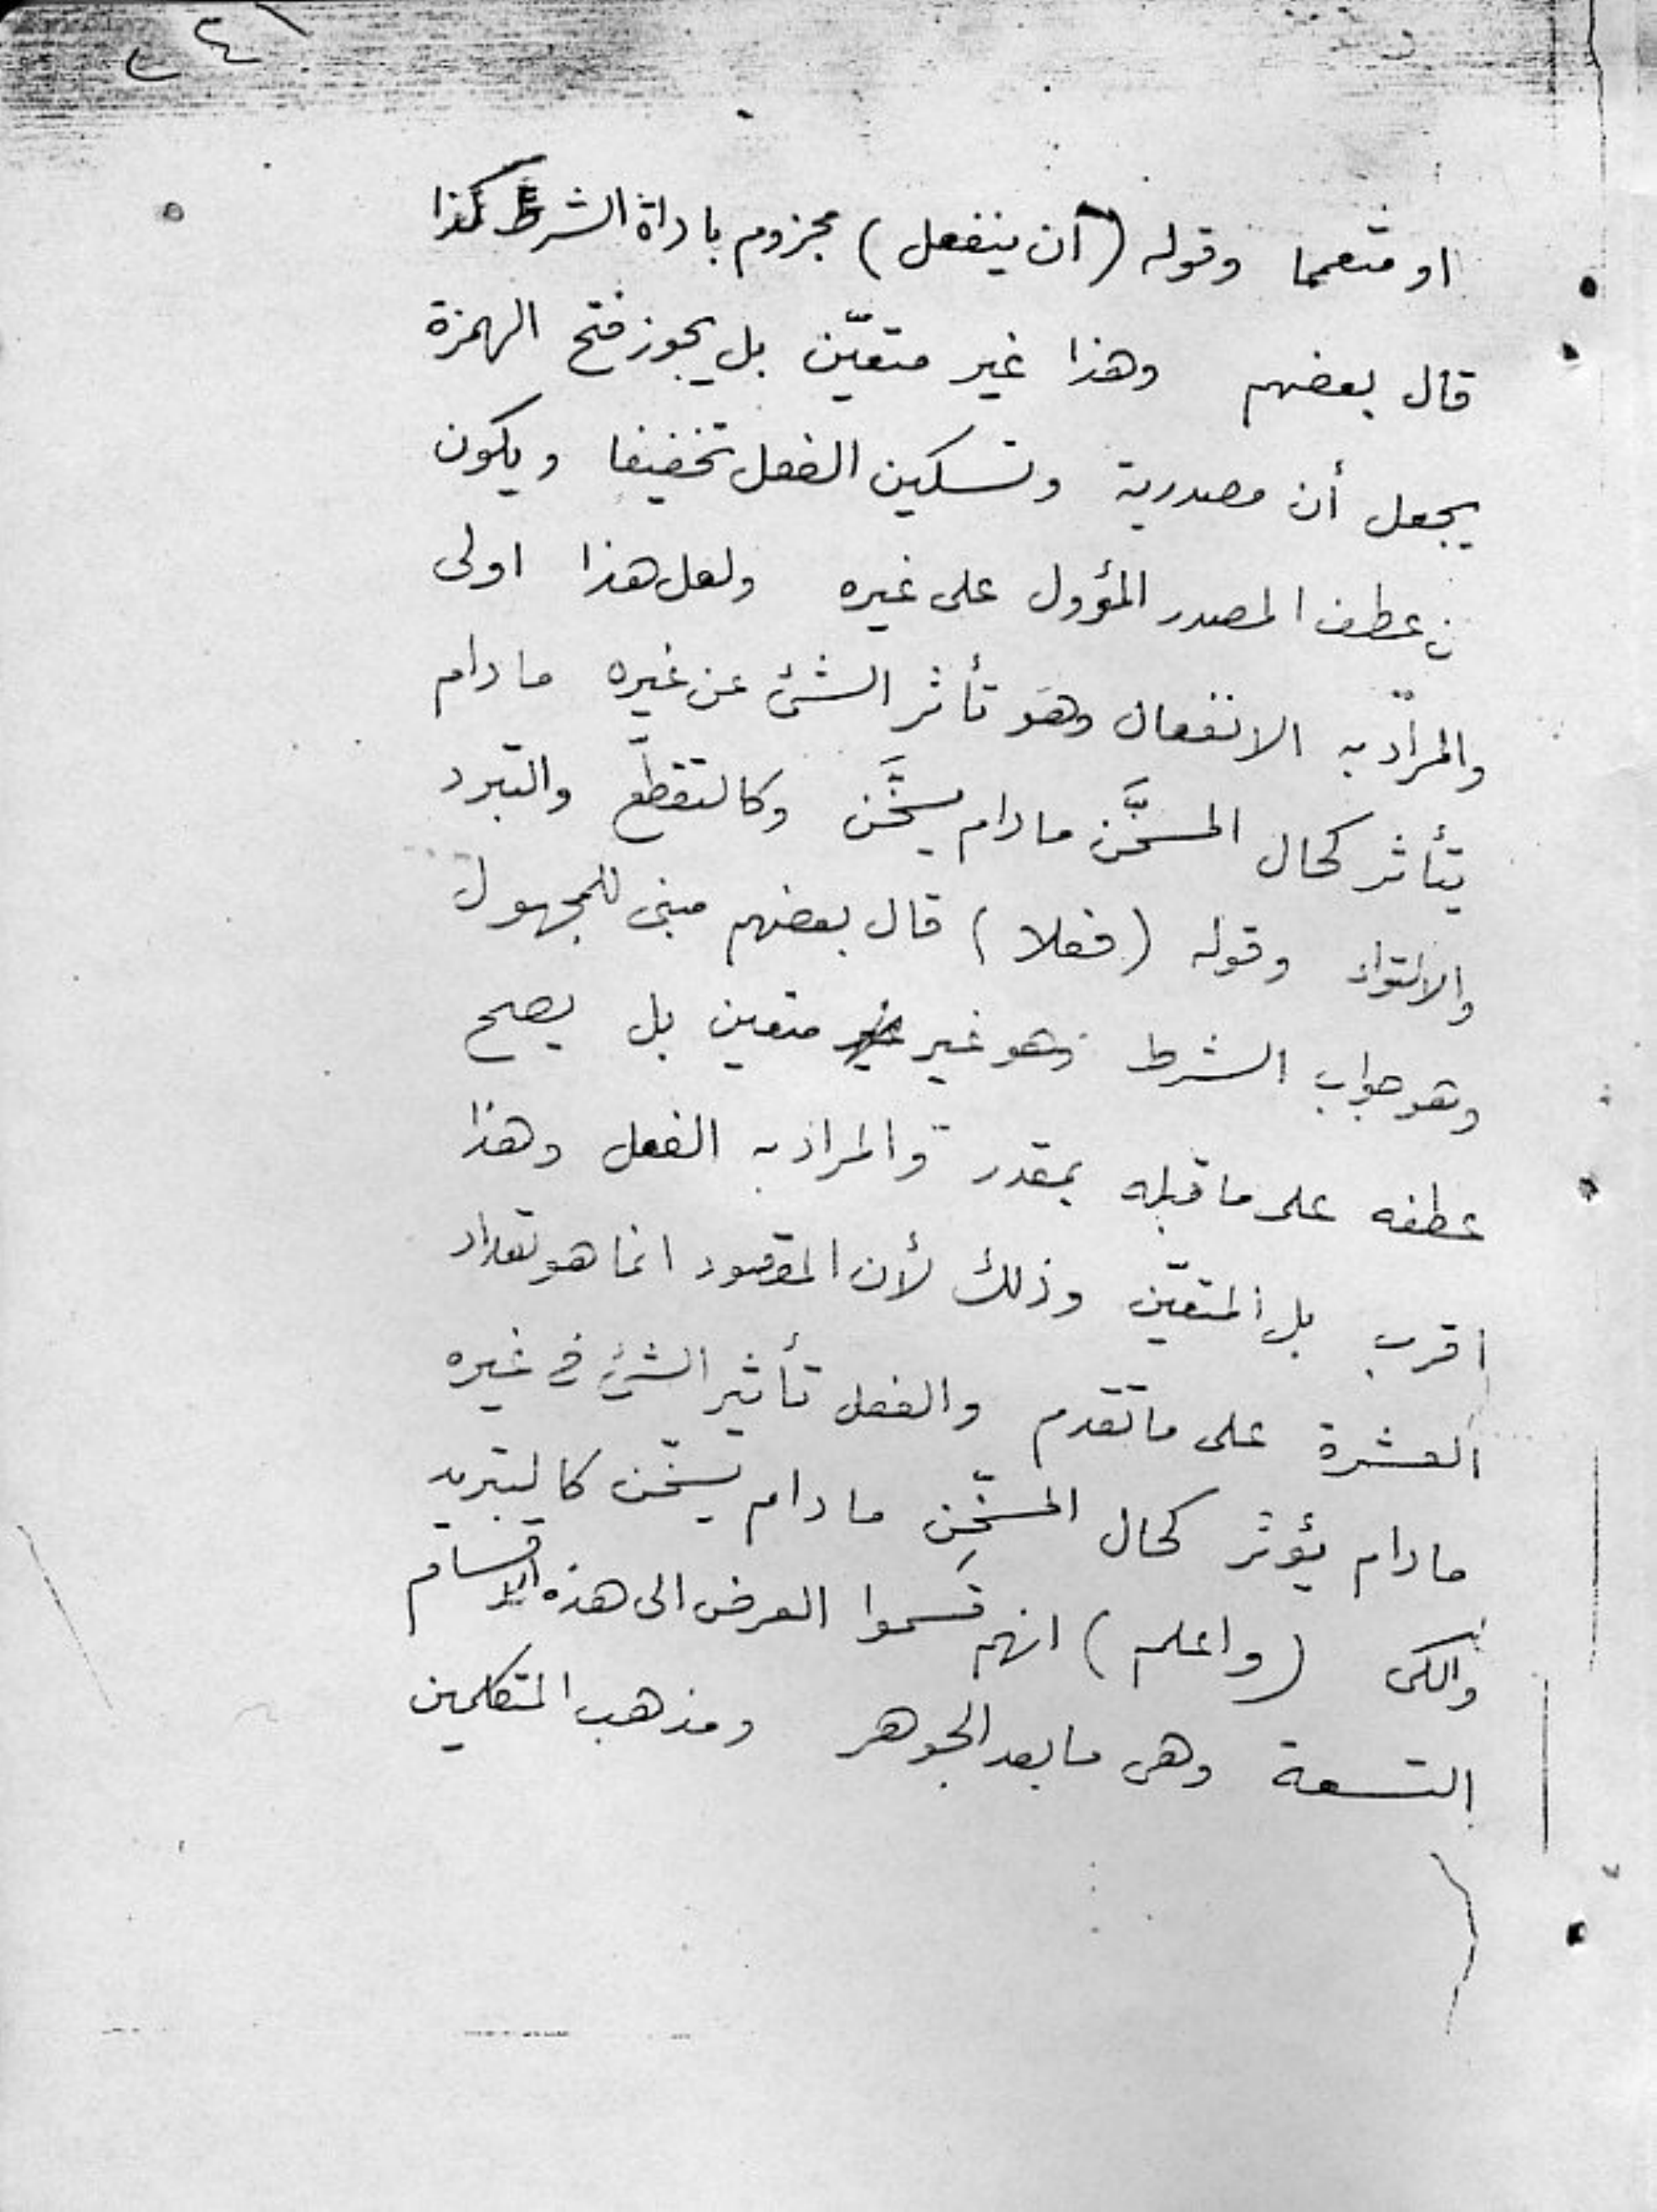 او متعمما وقوله (أن ينفعل) مجزوم باداة الشرط كذا
قال بعضهم وهذا غير متعيّن بل يجوز فتح الهمزة
يجعل أن مصدرية وتسكين الفعل تخفيفا ويكون
عطف المصدر المؤول على غيره ولعل هذا اولى
والمراد به الانفعال وهو تأثر الشئ عن غيره مادام
يتأثر كحال المسخَّن مادام يسخَّن وكالتقطّع والتبرد
والالتواء وقوله (فعلا) قال بعضهم مبنى للمجهول
وهو جواب الشرط وهو غير متعين بل يصح
عطفه على ما قبله بمقدر والمراد به الفعل وهذا
اقرب بل المتعيّن وذلك لأن المقصود انما هو تعداد
العشرة على ما تقدم والفعل تأثير الشئ فى غيره
مادام يؤثر كحال المسخِّن مادام يسخّن كالتبريد
والكى (واعلم) انهم قسموا العرض الى هذه الاقسام
التسعة وهى ما بعد الجوهر ومذهب المتكلمين